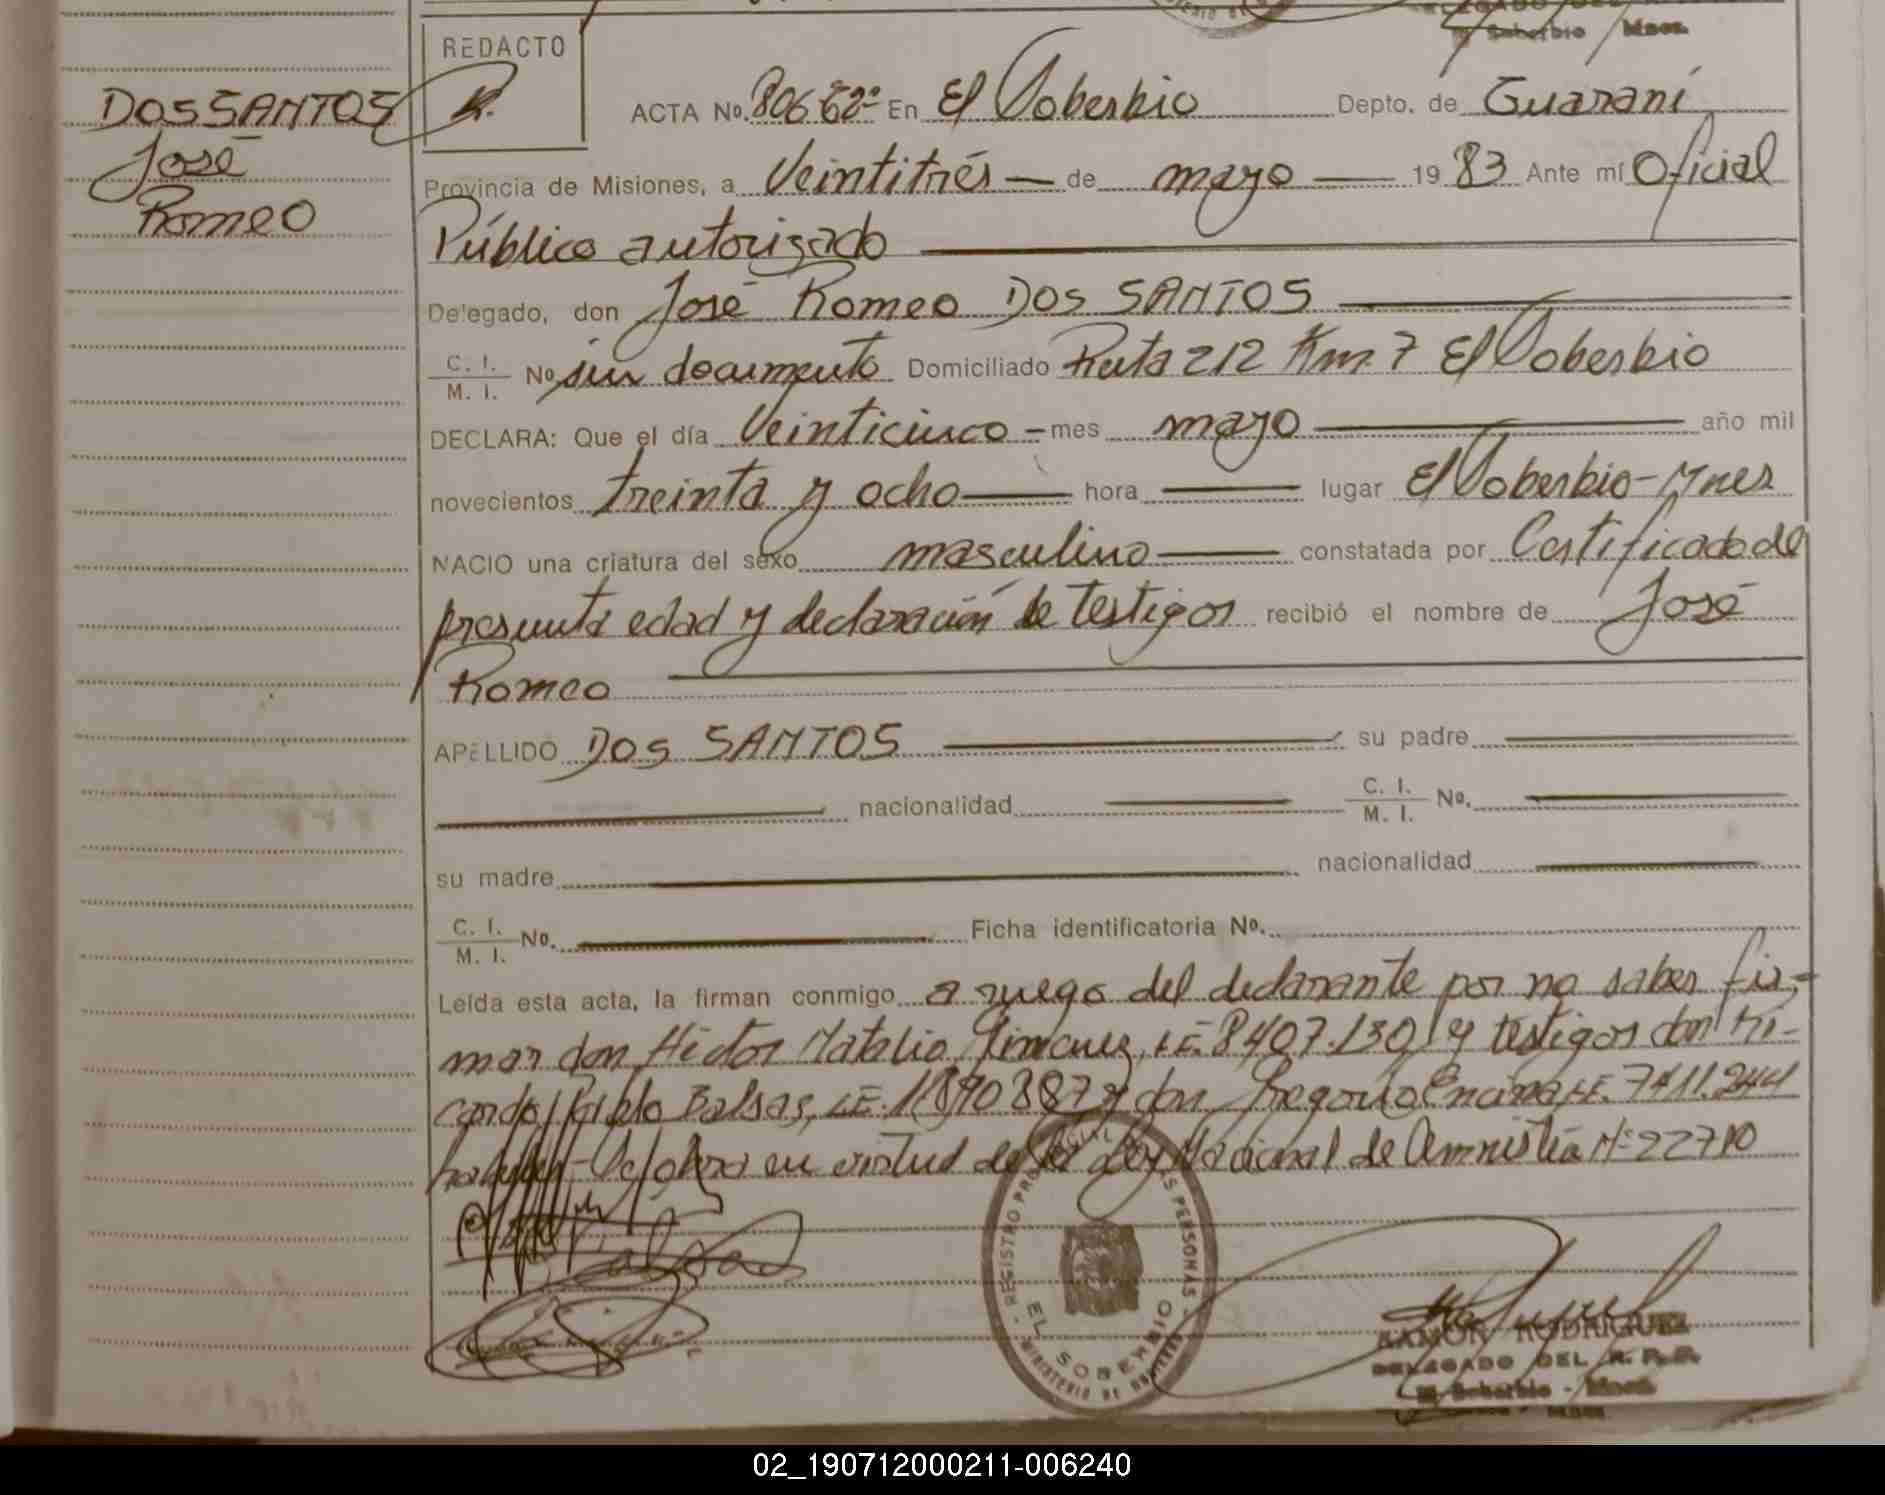 REDACTO
DOS SANTOS
José
Romeo
ACTA No. En El Soberbio Depto. de Guaraní
Provincia de Misiones, a Veintitrés — de mayo — 1983 Ante mí Oficial
Público autorizado
Delegado, don José Romeo DOS SANTOS
C. I.
M. I. No sin documento Domiciliado Ruta 212 Km. 7 El Soberbio
DECLARA: Que el día Veinticinco - mes mayo año mil
novecientos treinta y ocho hora lugar El Soberbio - Mnes
NACIO una criatura del sexo masculino constatada por Certificado de
presunta edad y declaración de testigos recibió el nombre de José
Romeo
APELLIDO DOS SANTOS su padre
nacionalidad C. I.
M. I. No.
su madre nacionalidad
C. I.
M. I. No. Ficha identificatoria No.
Leída esta acta, la firman conmigo a ruego del declarante por no saber fir-
mar don Héctor Natalio L.E. 8407.130 y testigos don Ri-
cardo Pablo Balsas, L.E. y don Gregorio Encina L.E. 7411.244
en virtud de la Ley Nacional de Amnistía Nº 22710
REGISTRO PROVINCIAL DE LAS PERSONAS
EL SOBERBIO
MINISTERIO DE GOBIERNO
RAMON RODRIGUEZ
DELEGADO DEL R. P. P.
El Soberbio - Mnes.
02_190712000211-006240